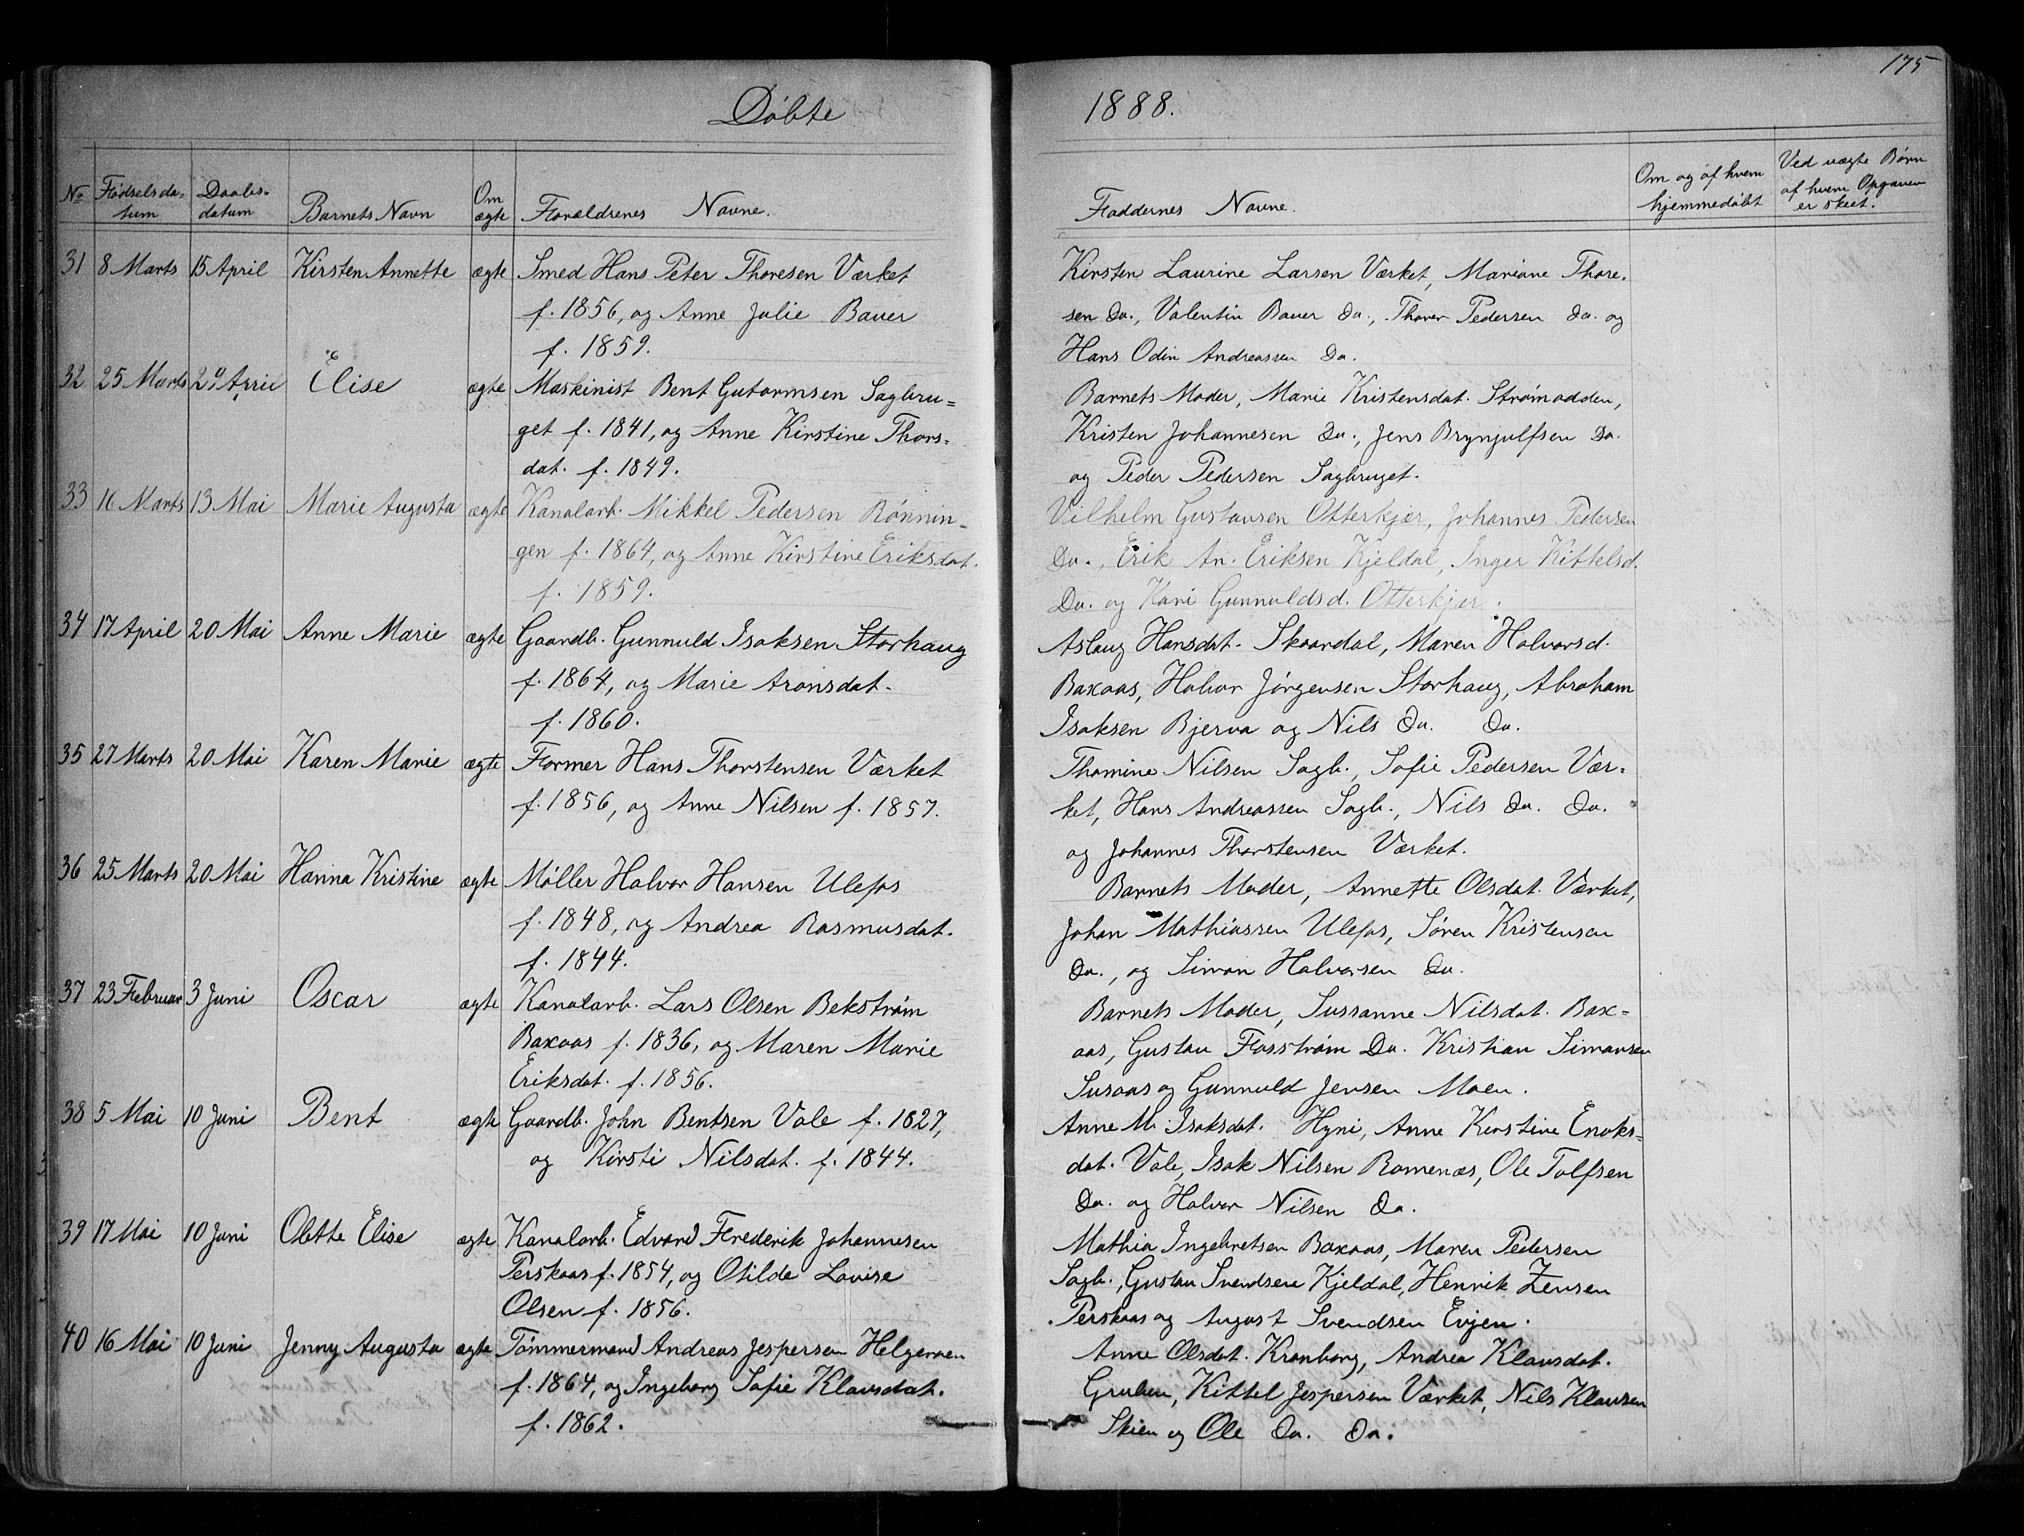 175
Døbte
1888.
No Fødselsda- Daabs- Barnets Navn Om Forældrenes Navne.
tum datum ægte
Faddernes Navne. Om og af hvem Ved uægte Børn
hjemmedøbt af hvem Opgaven
er skeet.
31 8 Marts 15 April Kirsten Annette ægte Smed Hans Peter Thoresen Værket
f. 1856, og Anne Julie Bauer
f. 1859.
Kirsten Laurine Larsen Værket, Mariane Thore-
sen Do., Valentin Bauer Do., Thorer Pedersen Do. og
Hans Odin Andreassen Do.
32 25 Marts 29 April Elise ægte Maskinist Bent Gutormsen Sagbru=
get f. 1841, og Anne Kirstine Thors-
dat. f. 1849.
Barnets Moder, Marie Kristensdat. Strømodden,
Kristen Johannesen Do., Jens Brynjulfsen Do.
og Peder Pedersen Sagbruget.
33 16 Marts 13 Mai Marie Augusta ægte Kanalarb. Mikkel Pedersen Rønnin-
gen f. 1864, og Anne Kirstine Eriksdat.
f. 1859.
Vilhelm Gustavsen Otterkjær, Johannes Pedersen
Do., Erik An. Eriksen Kjeldal, Inger Kittelsd.
Do. og Kari Gunnuldsd. Otterkjær.
34 17 April 20 Mai Anne Marie ægte Gaardb. Gunnuld Isaksen Storhaug
f. 1864, og Marie Aronsdat.
f. 1860.
Aslaug Hansdat. Skaardal, Maren Halvorsd.
Baxaas, Halvor Jørgensen Storhaug, Abraham
Isaksen Bjerva og Nils Do. Do.
35 27 Marts 20 Mai Karen Marie ægte Former Hans Thorstensen Værket
f. 1856, og Anne Nilsen f. 1857.
Thomine Nilsen Sagb., Sofie Pedersen Vær-
ket, Hans Andreassen Sagb., Nils Do. Do.
og Johannes Thorstensen Værket.
36 25 Marts 20 Mai Hanna Kristine ægte Møller Halvor Hansen Ulefos
f. 1848, og Andrea Rasmusdat.
f. 1844.
Barnets Moder, Annette Olsdat. Værket,
Johan Mathiassen Ulefos, Søren Kristensen
Do., og Simon Halvorsen Do.
37 23 Februar 3 Juni Oscar ægte Kanalarb. Lars Olsen Bekstrøm
Baxaas f. 1836, og Maren Marie
Eriksdat. f. 1856.
Barnets Moder, Sussanne Nilsdat. Bax=
aas, Gustav Flosstrøm Do. Kristian Simonsen
Susaas og Gunnuld Jensen Moen.
38 5 Mai 10 Juni Bent ægte Gaardb. John Bentsen Vale f. 1827,
og Kirsti Nilsdat. f. 1844.
Anne M. Isaksdat. Hyni, Anne Kirstine Enoks-
dat. Vale, Isak Nilsen Romenæs, Ole Tolfsen
Do. og Halvor Nilsen Do.
39 17 Mai 10 Juni Olette Elise ægte Kanalarb. Edvard Frederik Johannesen
Perskaas f. 1854, og Otilde Lovise
Olsen f. 1856.
Mathia Ingebretsen Baxaas, Maren Pedersen
Sagb., Gustav Svendsen Kjeldal, Henrik Zensen
Perskaas og August Svendsen Evjen.
40 16 Mai 10 Juni Jenny Augusta ægte Tømmermand Andreas Jespersen Helgeroen
f. 1864, og Ingeborg Sofie Klausdat.
f. 1862.
Anne Olsdat. Kronborg, Andrea Klausdat.
Gruben, Kittel Jespersen Værket, Nils Klausen
Skien og Ole Do. Do.